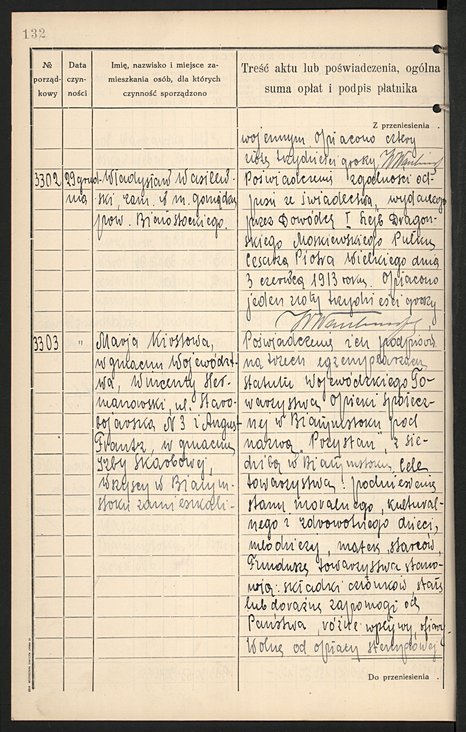 132
№ porząd- kowy
Data czyn- ności
Imię, nazwisko i miejsce za- mieszkania osób, dla których czynność sporządzono
Treść aktu lub poświadczenia, ogólna suma opłat i podpis płatnika
Z przeniesienia .
wojennym Opłacono cztery
złote trzydzieści groszy
3302
29 grud-
nia
Władysław Wasilew-
ski zam. w m. Goniądzu
pow. Białostockiego.
Poświadczenie zgodności od-
pisu ze świadectwa, wydanego
przez Dowódcę I Lejb Dragoń-
skiego Moskiewskiego Pułku
Cesarza Piotra Wielkiego dnia
3 czerwca 1913 roku. Opłacono
jeden złoty trzydzieści groszy
3303
"
Marja Kirstowa,
w gmachu Województ-
wa, Wincenty Her-
manowski, ul. Staro-
bojarska N 3 i August
Frantz, w gmachu
Izby Skarbowej,
wszyscy w Białym-
stoku zamieszkali -
Poświadczenie ich podpisów
na trzech egzemplarzach
statutu Wojewódzkiego To-
warzystwa Opieki Społecz-
nej w Białymstoku pod
nazwą "Przystań", z sie-
dzibą w Białymstoku, Cele
towarzystwa: podniesienie
stanu moralnego, kultural-
nego i zdrowotnego dzieci,
młodzieży, matek, starców,
Fundusze towarzystwa stano-
wią: składki członków, stałe
lub doraźne zapomogi od
Państwa, różne wpływy, ofiary
Wolne od opłaty stemplowej
Do przeniesienia .